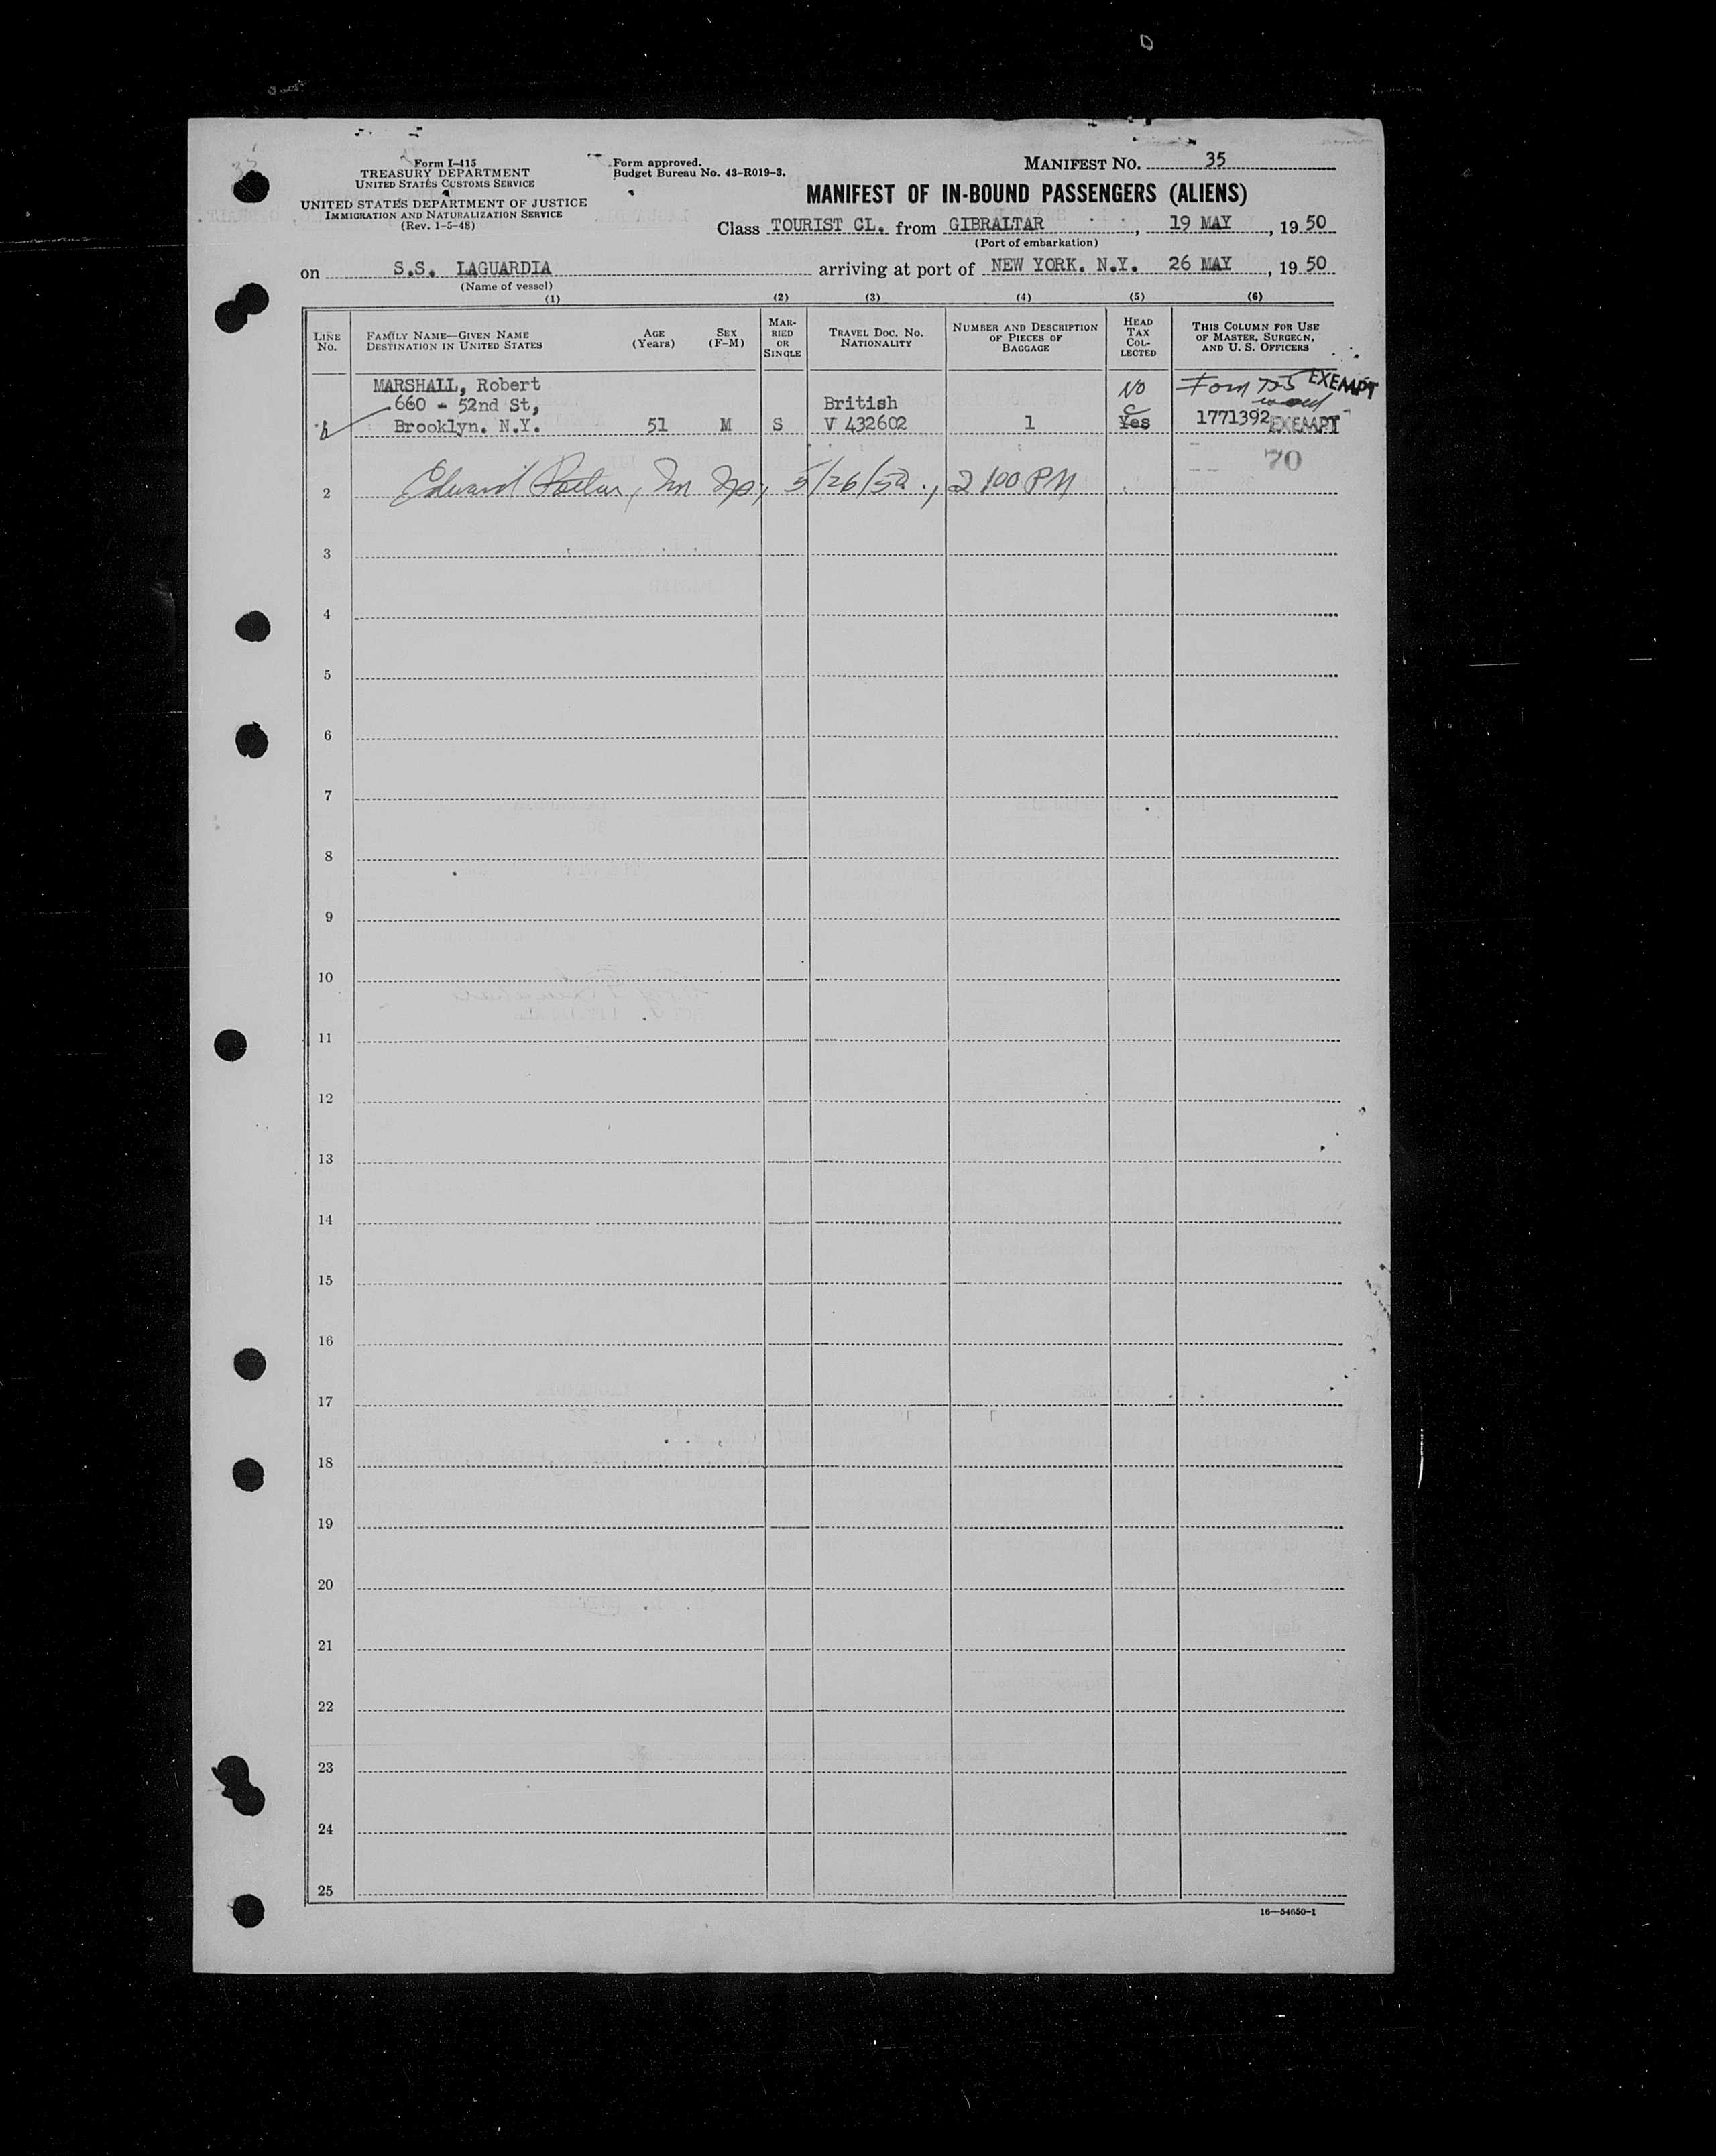 Form I-415
TREASURY DEPARTMENT
UNITED STATES CUSTOMS SERVICE
UNITED STATES DEPARTMENT OF JUSTICE
IMMIGRATION AND NATURALIZATION SERVICE
(Rev. 1-5-48)
Form approved.
Budget Bureau No. 43-R019-3.
MANIFEST NO. 35
MANIFEST OF IN-BOUND PASSENGERS (ALIENS)
Class TOURIST CL. from GIBRALTAR, 19 MAY, 19 50
(Port of embarkation)
on S.S. LAGUARDIA arriving at port of NEW YORK. N.Y. 26 MAY, 19 50
(Name of vessel)
(1) (2) (3) (4) (5) (6)
LINE NO.
FAMILY NAME—GIVEN NAME
DESTINATION IN UNITED STATES
AGE
(Years)
SEX
(F-M)
MAR-
RIED
OR
SINGLE
TRAVEL DOC. NO.
NATIONALITY
NUMBER AND DESCRIPTION
OF PIECES OF
BAGGAGE
HEAD
TAX
COL-
LECTED
THIS COLUMN FOR USE
OF MASTER, SURGEON,
AND U. S. OFFICERS
MARSHALL, Robert NO Form EXEMPT
660 - 52nd St, British
Brooklyn. N.Y. 51 M S V 432602 1 Yes 1771392 EXEMPT
70
2 Edward 5/26/50., 2:00 PM
3
4
5
6
7
8
9
10
11
12
13
14
15
16
17
18
19
20
21
22
23
24
25
16—54650-1